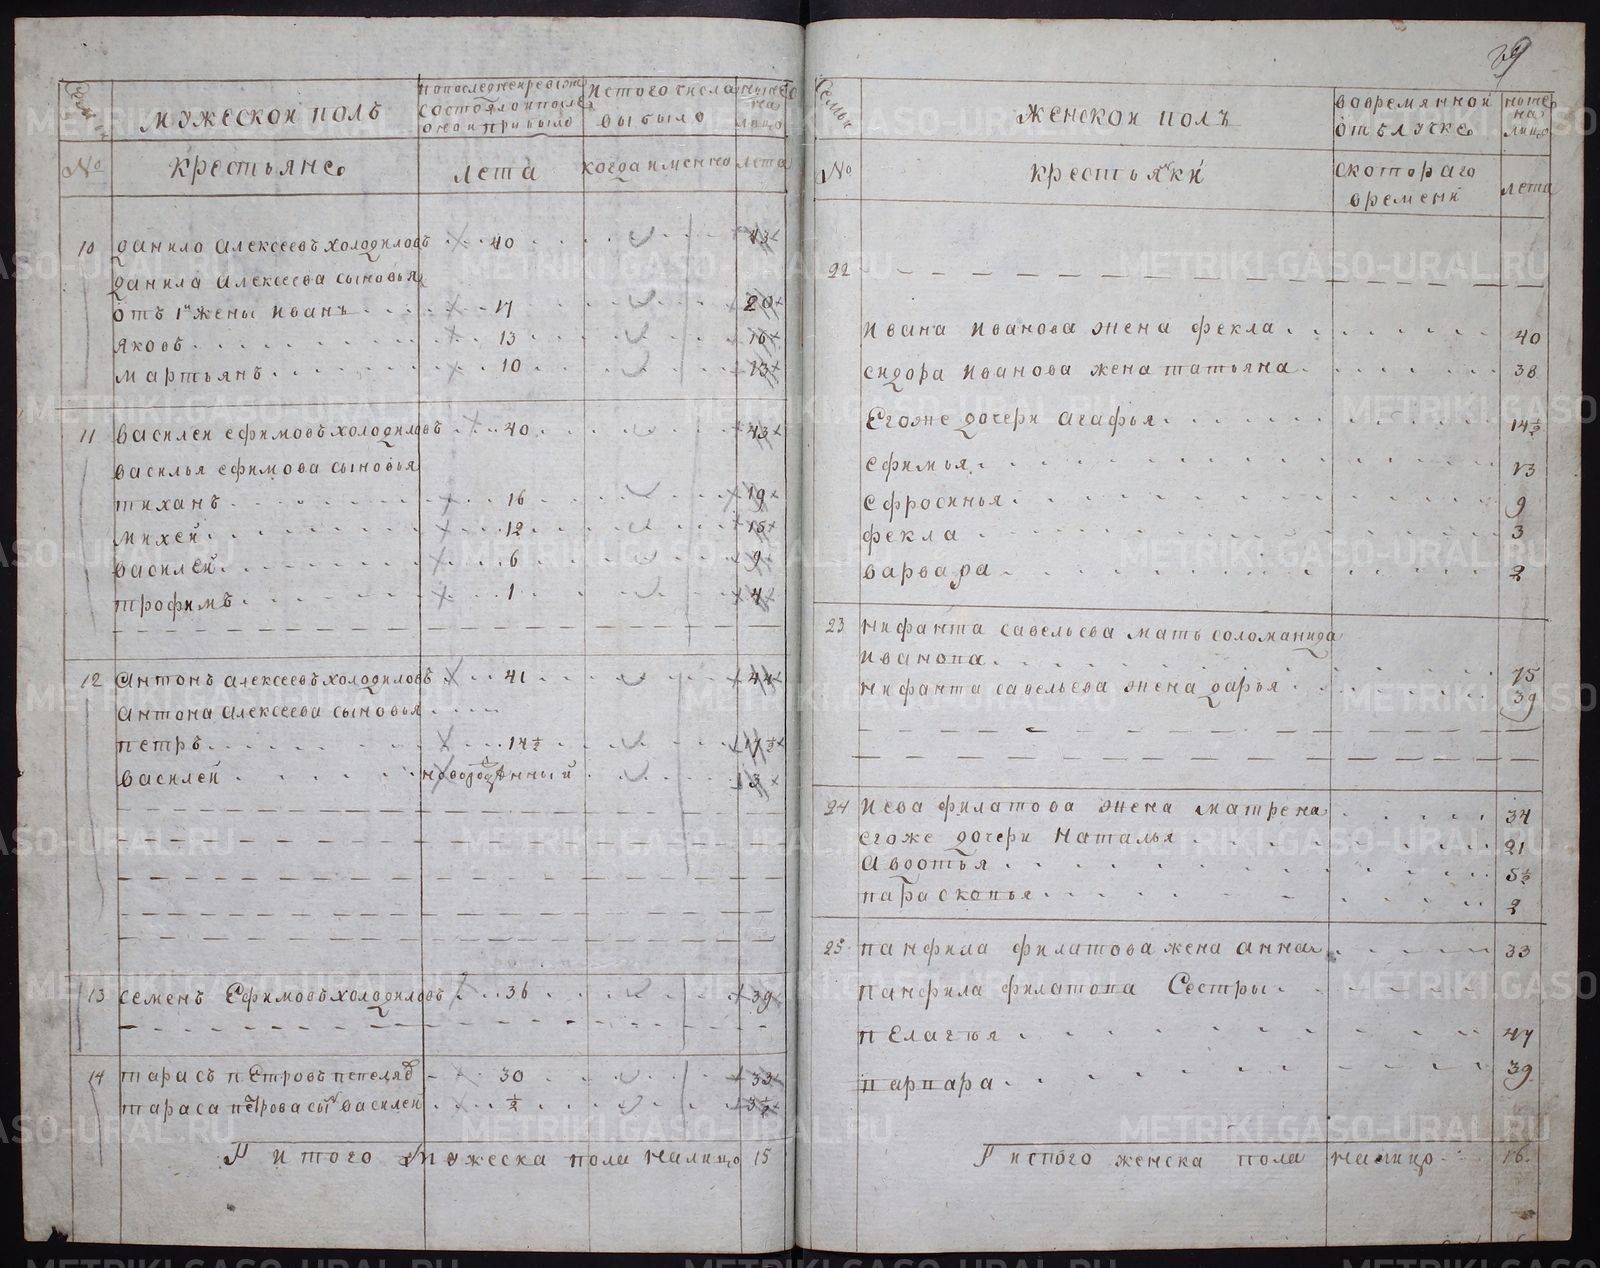 Семьи
мужескои полъ
по последнеи ревизи
состояло и после
оной прибыло
Истого числа
выбыло
ныне
на
лицо
№
крестьяне
лета
когда именно
лета
10 данило алексеевъ холодиловъ 40 43
данила алексеева сыновья
отъ 1й жены иванъ 17 20
яковъ 13 16
мартьянъ 10 13
11 василеи ефимовъ холодиловъ 40 43
василья ефимова сыновья
тиханъ 16 19
михей 12 15
василей 6 9
трофимъ 1 4
12 антонъ алексеевъ холодиловъ 41 44
антона алексеева сыновья
петръ 14½ 17½
василей новорожденный 3
13 семенъ Ефимовъ холодиловъ 36 39
14 тарасъ петровъ пепеляв 30 33
тараса петрова сын василеи ½ 3½
итого мужеска пола налицо 15
39
Семьи
женскои полъ
вовремянной
отълучке
ныне
на
лицо
№
крестьянки
скотораго
времени
лета
22
ивана иванова жена фекла 40
сидора иванова жена татьяна 38
Егоже дочери агафья 14½
ефимья 13
ефросинья 9
фекла 3
варвара 2
23 нифанта савельева мать соломанида
иванова 75
нифанта савельева жена дарья 39
24 иева филатова жена матрена 34
егоже дочери наталья 21
авдотья 5½
парасковья 2
25 панфила филатова жена анна 33
панфила филатова Сестры
пелагья 47
варвара 39
итого женска пола налицо 16
METRIKI.GASO-URAL.RU